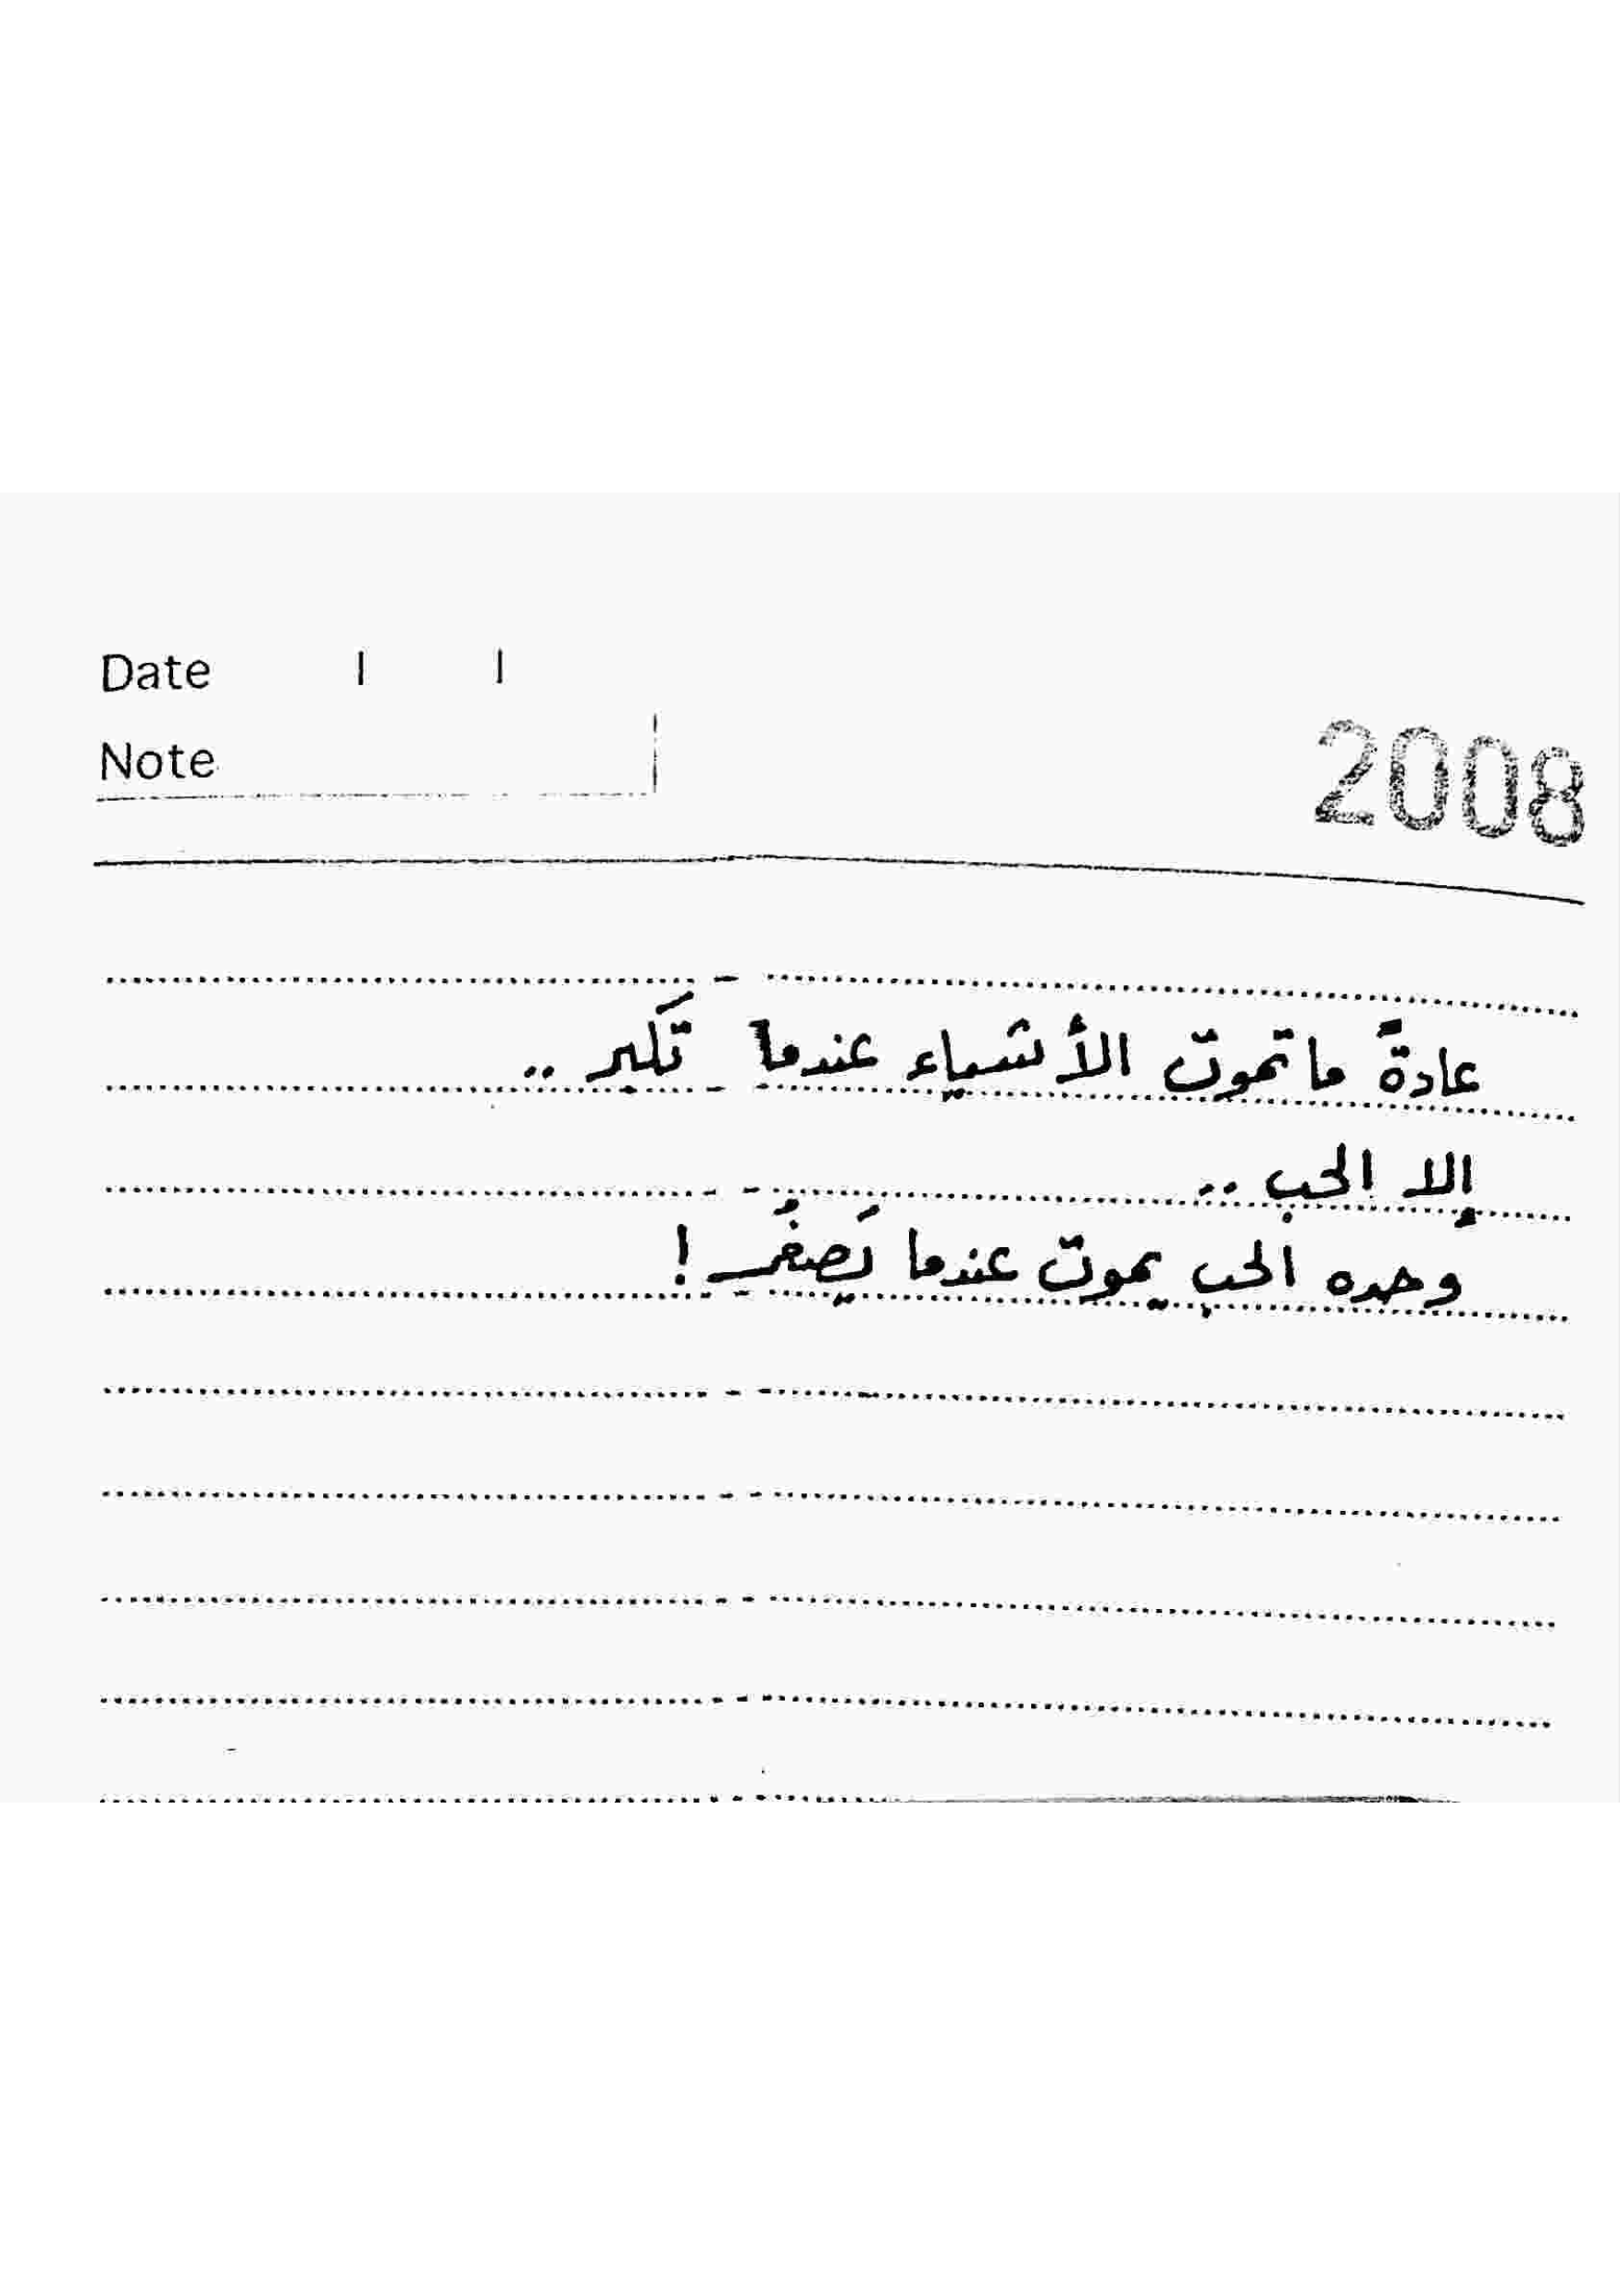 Date / /
Note
2008
عادةً ما تموت الأشياء عندما تَكبر ..
إلا الحب ..
وحده الحب يموت عندما يَصغُر !